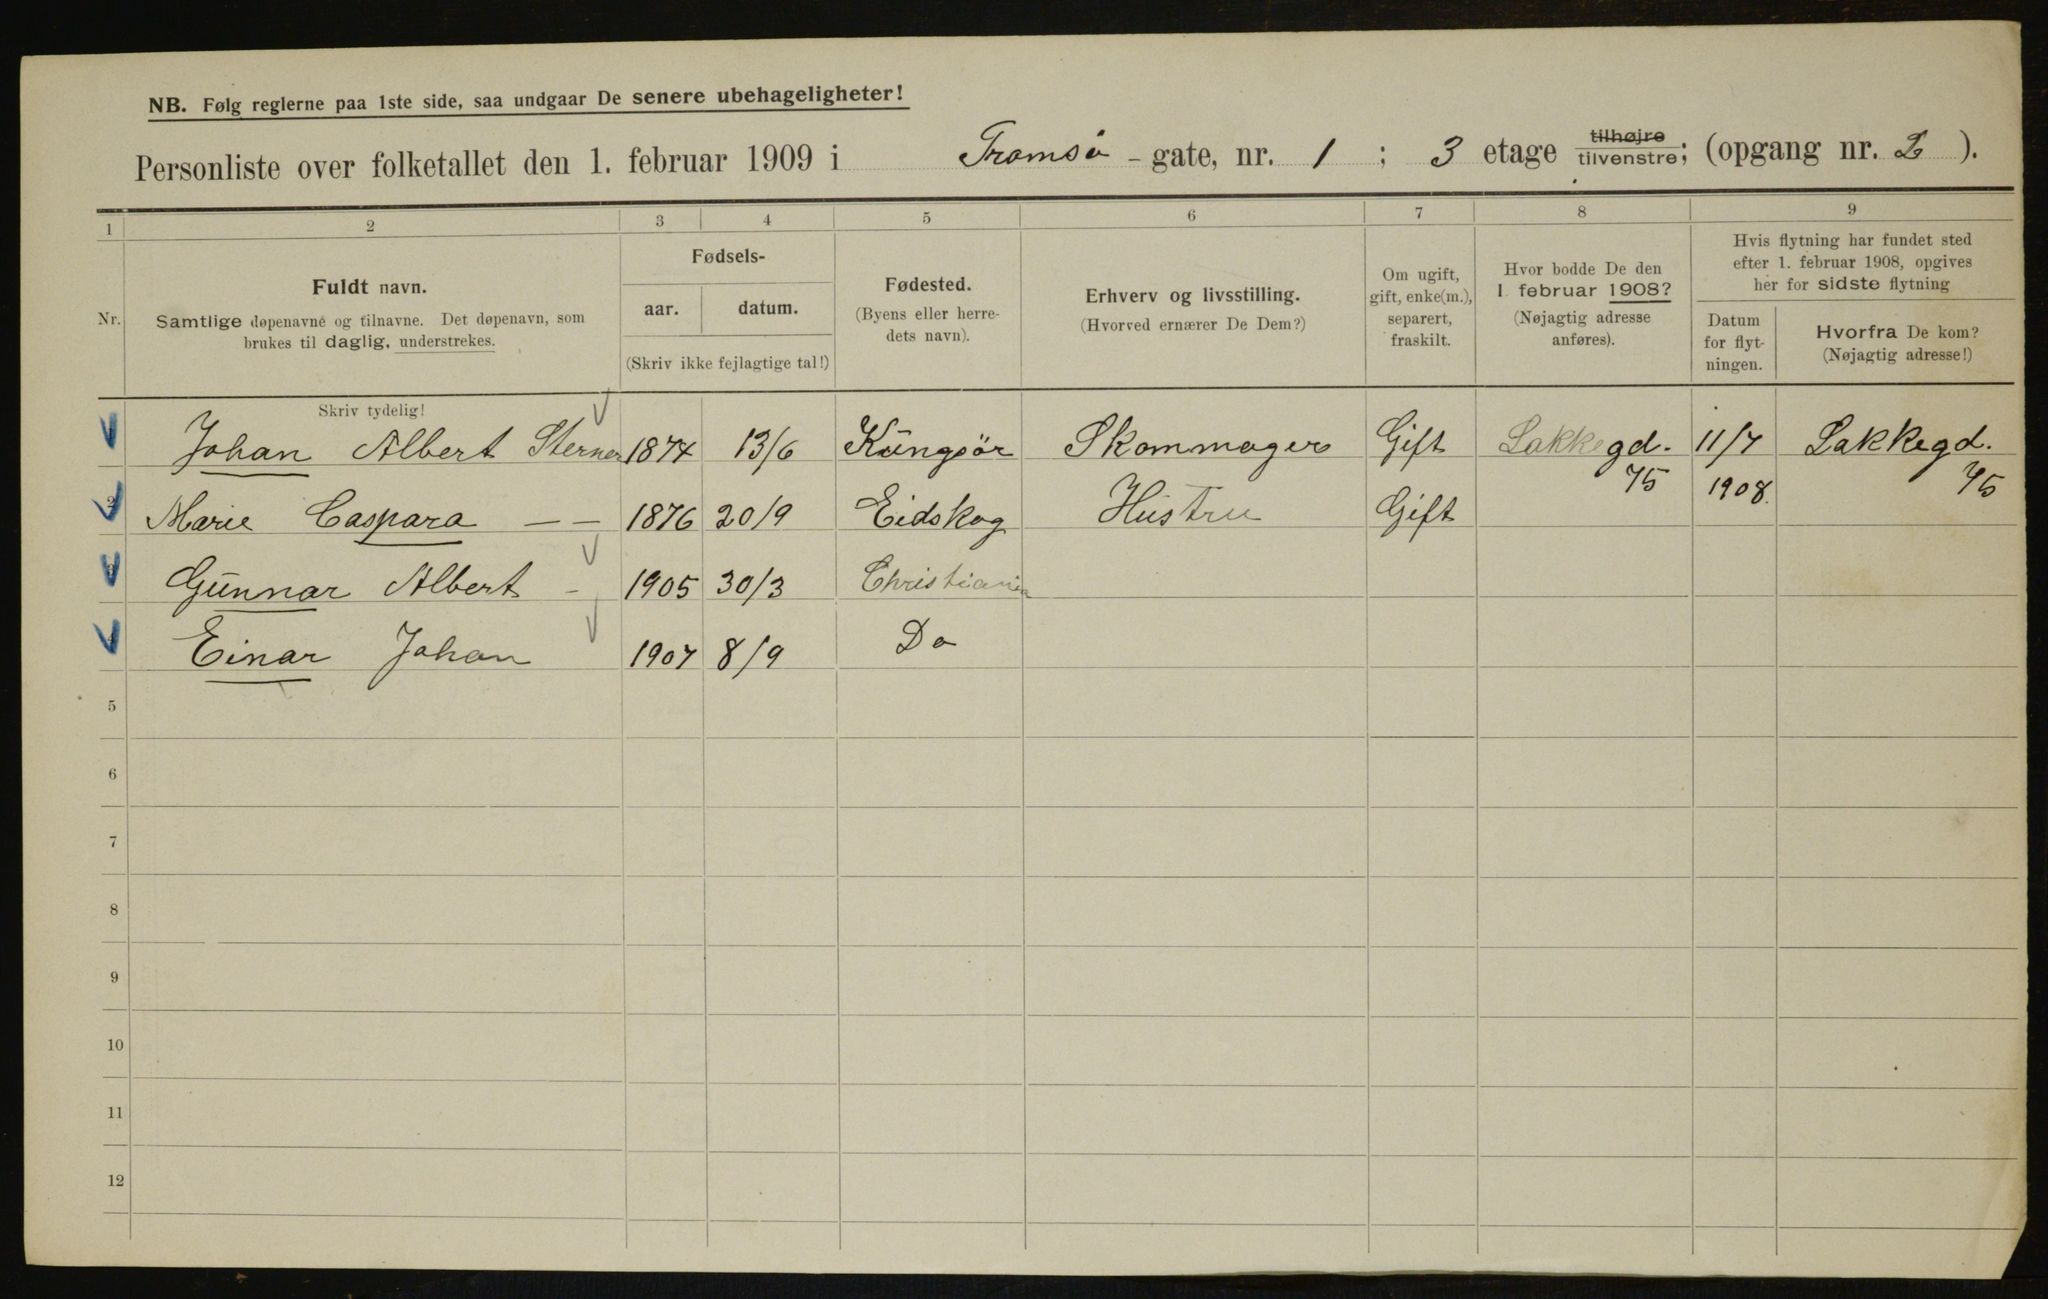 NB. Følg reglerne paa 1ste side, saa undgaar De senere ubehageligheter!
Personliste over folketallet den 1. februar 1909 i Tromsö - gate, nr. 1 ; 3 etage tilhøjre tilvenstre; (opgang nr. 2 ).
1 2 3 4 5 6 7 8 9
Nr.
Fuldt navn.
Samtlige døpenavne og tilnavne. Det døpenavn, som
brukes til daglig, understrekes.
Skriv tydelig!
Fødsels-
aar. datum.
(Skriv ikke fejlagtige tal!)
Fødested.
(Byens eller herre-
dets navn).
Erhverv og livsstilling.
(Hvorved ernærer De Dem?)
Om ugift,
gift, enke(m.),
separert,
fraskilt.
Hvor bodde De den
1. februar 1908?
(Nøjagtig adresse
anføres).
Hvis flytning har fundet sted
efter 1. februar 1908, opgives
her for sidste flytning
Datum
for flyt-
ningen.
Hvorfra De kom?
(Nøjagtig adresse!)
1 Johan Albert Sterner 1874 13/6 Kungsör Skommager Gift Lakkegd. 75 11/7 1908. Lakkegd. 75
2 Marie Caspara — — 1876 20/9 Eidskog Hustru Gift
3 Gunnar Albert - 1905 30/3 Christiania
4 Einar Johan 1907 8/9 Do
5
6
7
8
9
10
11
12